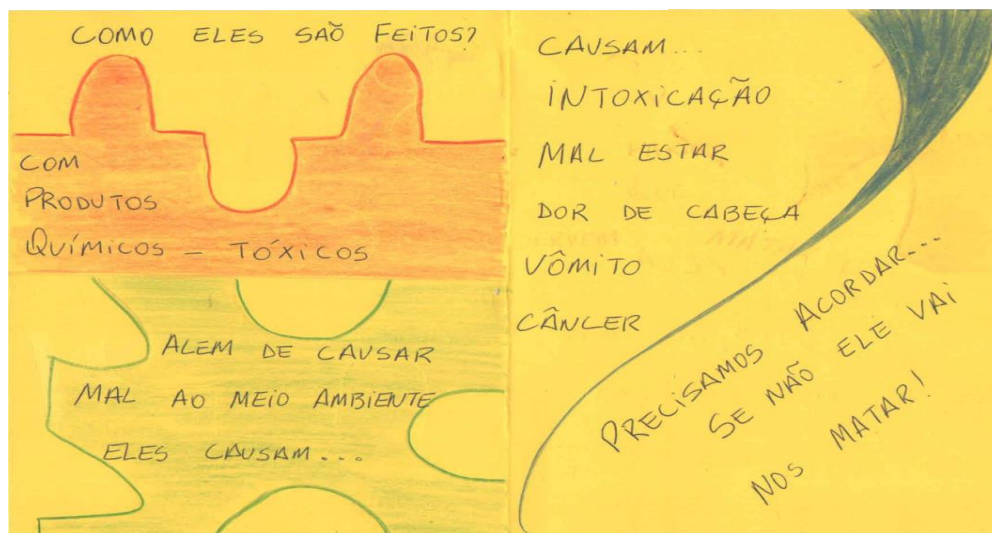 COMO ELES SÃO FEITOS?
COM
PRODUTOS
QUÍMICOS – TÓXICOS
ALEM DE CAUSAR
MAL AO MEIO AMBIENTE
ELES CAUSAM...
CAUSAM...
INTOXICAÇÃO
MAL ESTAR
DOR DE CABEÇA
VÔMITO
CÂNCER
PRECISAMOS ACORDAR...
SE NÃO ELE VAI
NOS MATAR!